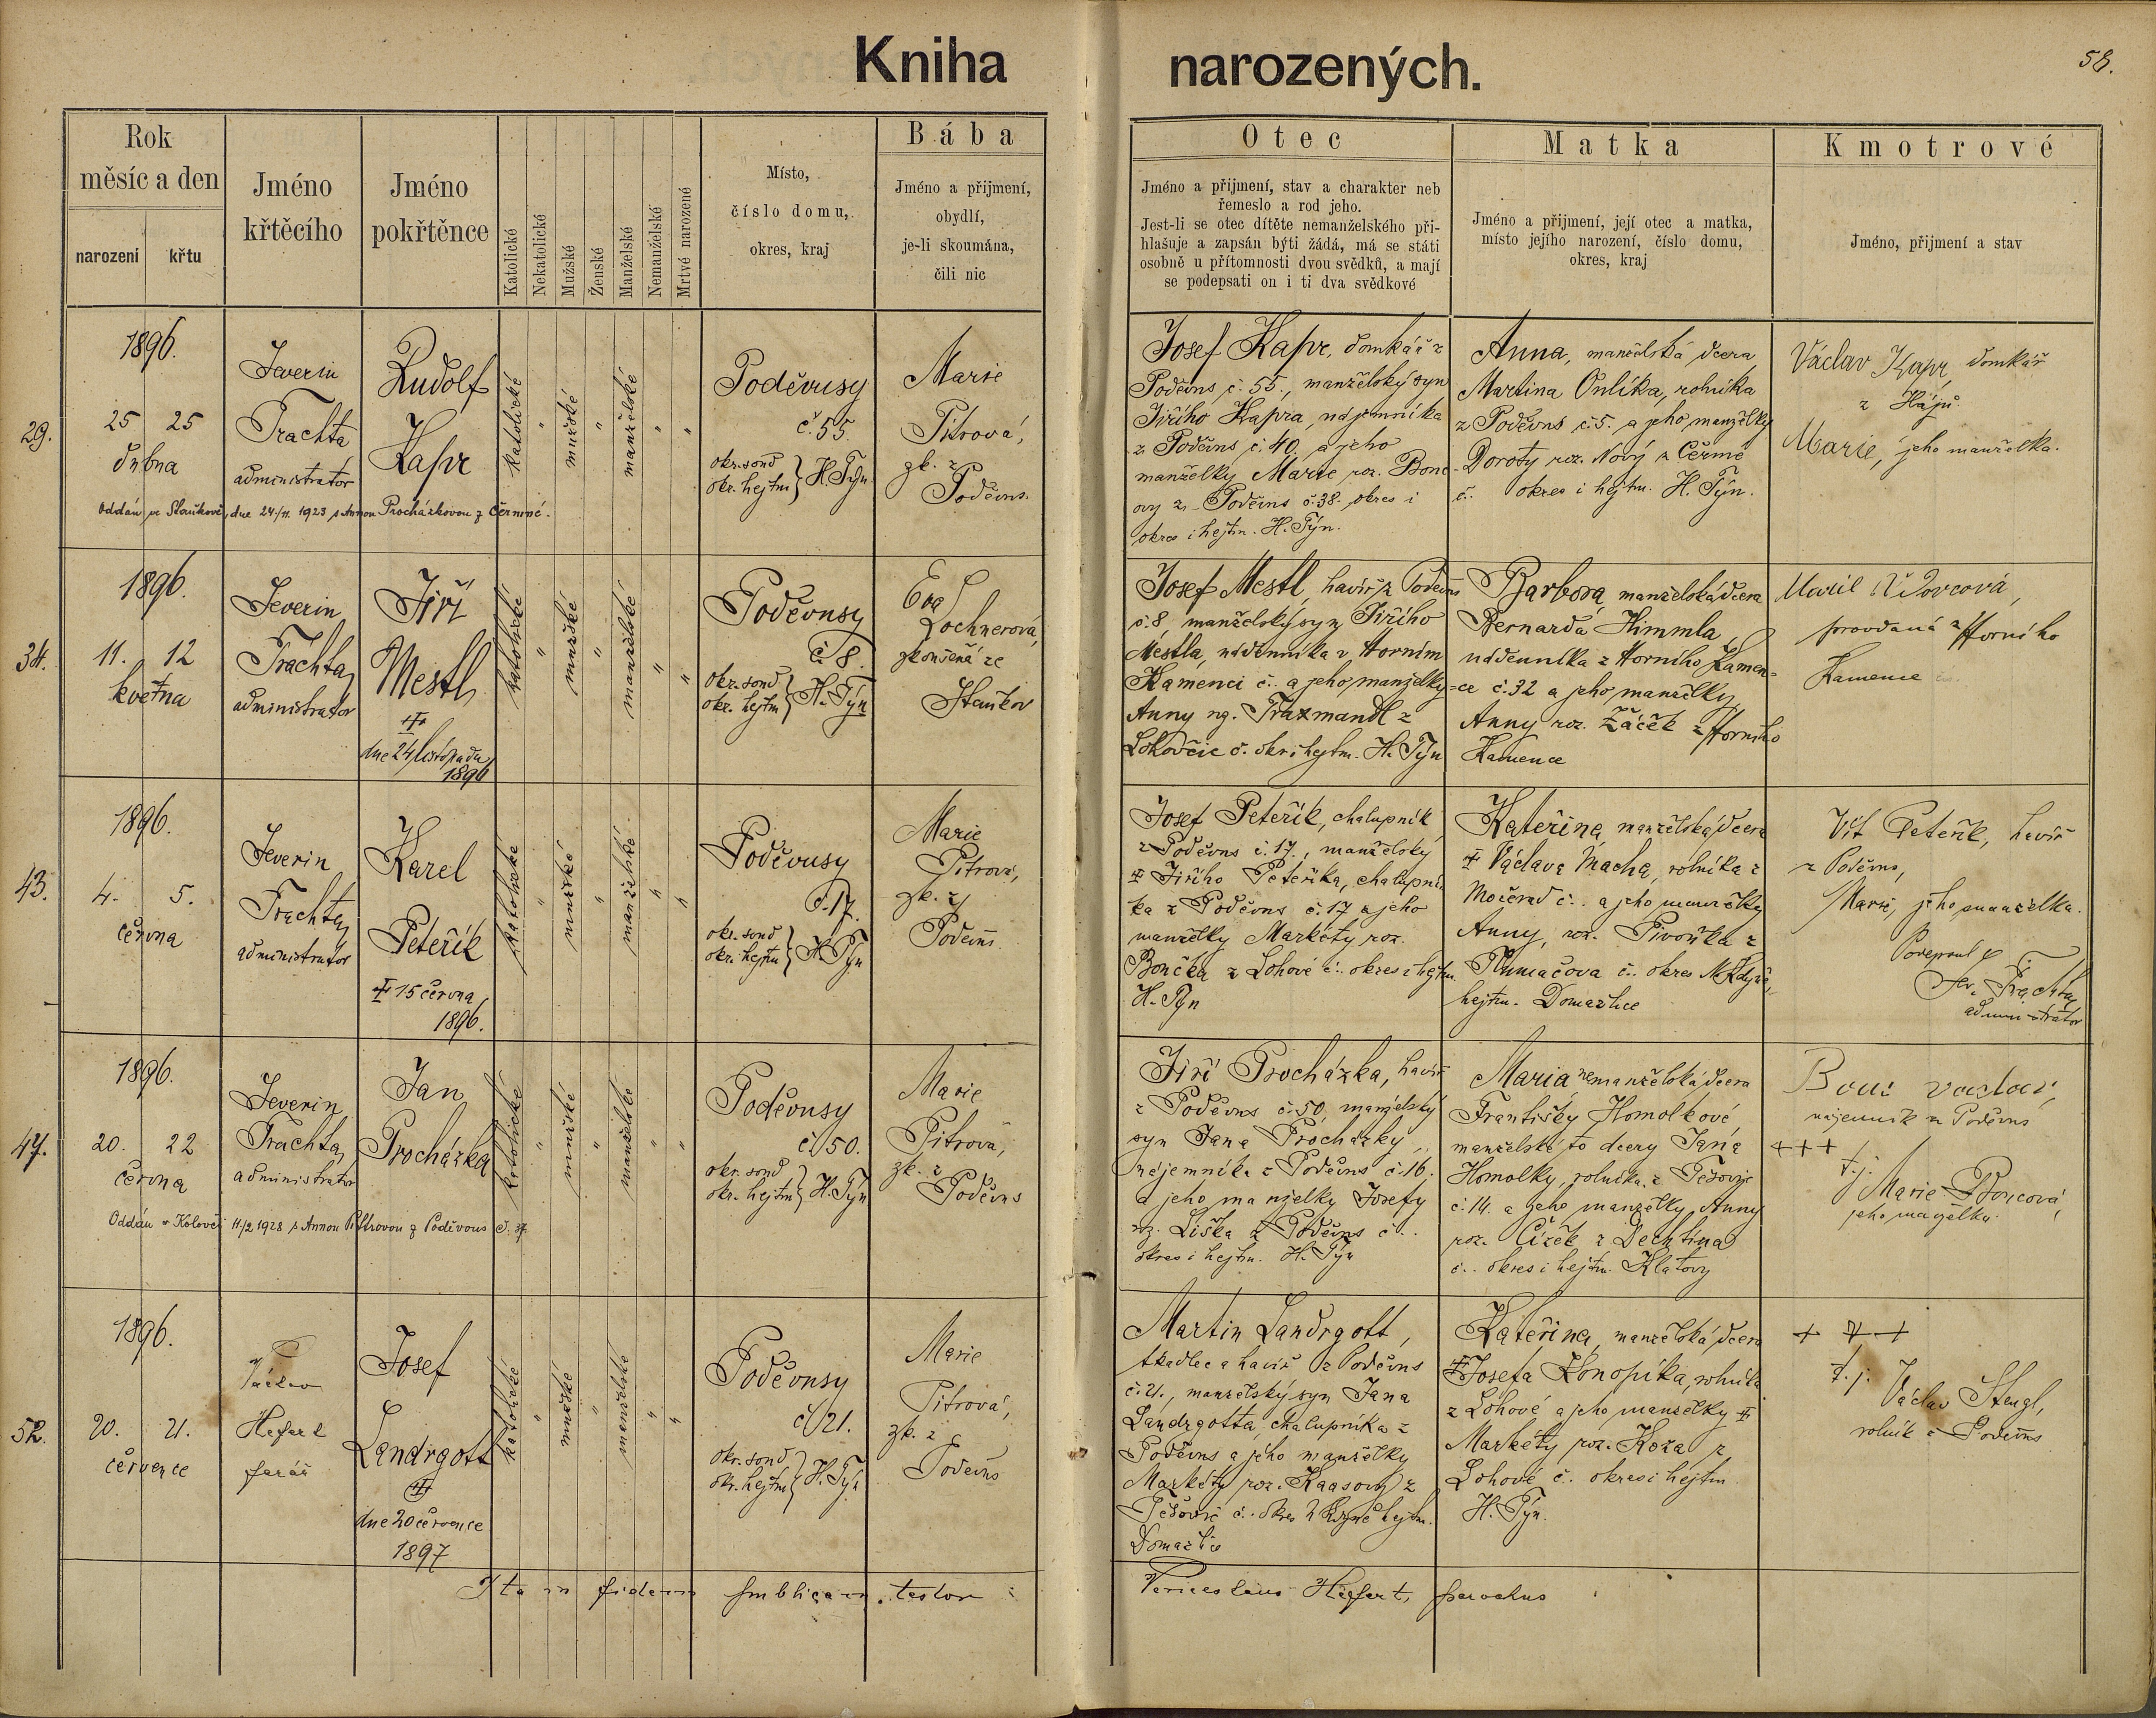 Kniha narozených.
58.
Rok
měsíc a den
narození
křtu
Jméno
křtěcího
Jméno
pokřtěnce
Katolické
Nekatolické
Mužské
Ženské
Manželské
Nemanželské
Mrtvě narozené
Místo,
číslo domu,
okres, kraj
Bába
Jméno a přijmení,
obydlí,
je-li skoumána,
čili nic
Otec
Jméno a přijmení, stav a charakter neb
řemeslo a rod jeho.
Jest-li se otec dítěte nemanželského při-
hlašuje a zapsán býti žádá, má se státi
osobně u přítomnosti dvou svědků, a mají
se podepsati on i ti dva svědkové
Matka
Jméno a přijmení, její otec a matka,
místo jejího narození, číslo domu,
okres, kraj
Kmotrové
Jméno, přijmení a stav
29.
1896.
25 25
dubna
Severin
Trachta
administrátor
Rudolf
Kapr
katolické
"
mužské
"
manželské
"
"
Poděvusy
č. 55.
okr. soud
okr. hejtm } H. Týn
Marie
Pitrová,
zk. z
Poděvus.
Oddán ve Staňkově, dne 24/11. 1923 s Annou Procházkovou z Černiné.
Josef Kapr, domkář z
Poděvus č. 55., manželský syn
Jiřího Kapra, nájemníka
z Poděvus č. 40. a jeho
manželky Marie roz. Bene-
ovy z Poděvus č. 38. okres i
okres i hejtm. H. Týn.
Anna, manželská dcera
Martina rolníka
z Poděvus č. 5. a jeho manželky
Doroty roz. Nový z Čermé
č. okres i hejtm. H. Týn.
Václav Kapr, domkář
z Hájů.
Marie, jeho manželka.
34.
1896.
11. 12
května
Severin
Trachta,
administrátor
Jiří
Mestl
dne 24 listopadu
1896
katolické
"
mužské
"
manželské
"
"
Poděvusy
č. 8.
okr. soud
okr. hejtm } H. Týn
Eva
Lochnerová,
zkoušená ze
Staňkov
Josef Mestl, havíř z Poděvus
č. 8 manželský syn Jiřího
Mestla, nádenníka v Horním
Kamenci č. a jeho manželky
Anny roz. Traxmandl z
Lohovčic č. okr. i hejtm. H. Týn
Barbora manželská dcera
Bernarda Himmla,
nádenníka z Horního Kamen-
ce č. 32 a jeho manželky
Anny roz. Žáček z Horního
Kamence
provdaná z Horního
Kamence
43.
1896.
4. 5.
června
Severin
Trachta,
administrátor
Karel
Peteřík
15 června
1896.
katolické
"
mužské
"
manželské
"
"
Poděvusy
č. 17.
okr. soud
okr. hejtm } H. Týn
Marie
Pitrová,
zk. z
Poděvus
Josef Peteřík, chalupník
z Poděvus č. 17., manželský
Jiřího Peteříka, chalupní-
ka z Poděvus č. 17 a jeho
manželky Markéty roz.
Bončka z Lohové č. okres i hejtm.
H. Týn
Kateřina, manželská dcera
Václava Macha, rolníka z
Močerad č. a jeho manželky
Anny, roz. Pivoňka z
Tlumačova č. okres N. Kdyně,
hejtm. Domažlice
Vít Peteřík, havíř
z Poděvus,
Marie, jeho manželka.
Sev. Trachta,
administrátor
47.
1896.
20. 22
června
Severin
Trachta,
administrátor
Jan
Procházka
katolické
"
mužské
"
manželské
"
"
Poděvusy
č. 50.
okr. soud
okr. hejtm } H. Týn
Marie
Pitrová,
zk. z
Poděvus
Oddán v Kolovči 11/2 1928 s Annou Pittrovou z Poděvous č. 37.
Jiří Procházka, havíř
z Poděvus č. 50, manželský
syn Jana Procházky,
nájemníka z Poděvus č. 16.
a jeho manželky Josefy
roz. Liška z Poděvus č..
okres i hejtm. H. Týn
Maria nemanželská dcera
Františky Homolkové
manželské to dcery Jana
Homolky, rolníka z Těšovic
č. 14. a jeho manželky Anny
roz. Čížek z Dechtína
č.. okres i hejtm. Klatovy
nájemník z Poděvus
+++
t.j.
Marie Boucová,
jeho manželka.
52.
1896.
20. 21.
července
Václav
Hefert
farář
Josef
Landrgott
dne 20 července
1897
katolické
"
mužské
"
manželské
"
"
Poděvusy
č. 21.
okr. soud
okr. hejtm } H. Týn
Marie
Pitrová,
zk. z
Poděvus
Martin Landrgott,
tkadlec a havíř z Poděvus
č. 21., manželský syn Jana
Landrgotta, chalupníka z
Poděvus a jeho manželky
Markéty roz. Kaasový z
Těšovic č. okres N. Kdyně hejtm.
Domažlice
Kateřina, manželská dcera
Josefa Konopíka, rolníka
z Lohové a jeho manželky
Markéty roz. Koza z
Lohové č.. okres i hejtm
H. Týn.
+++
t.j.
Václav Stengl,
rolník z Poděvus
Ita in fidem publicam testor: Venceslaus Hefert, parochus